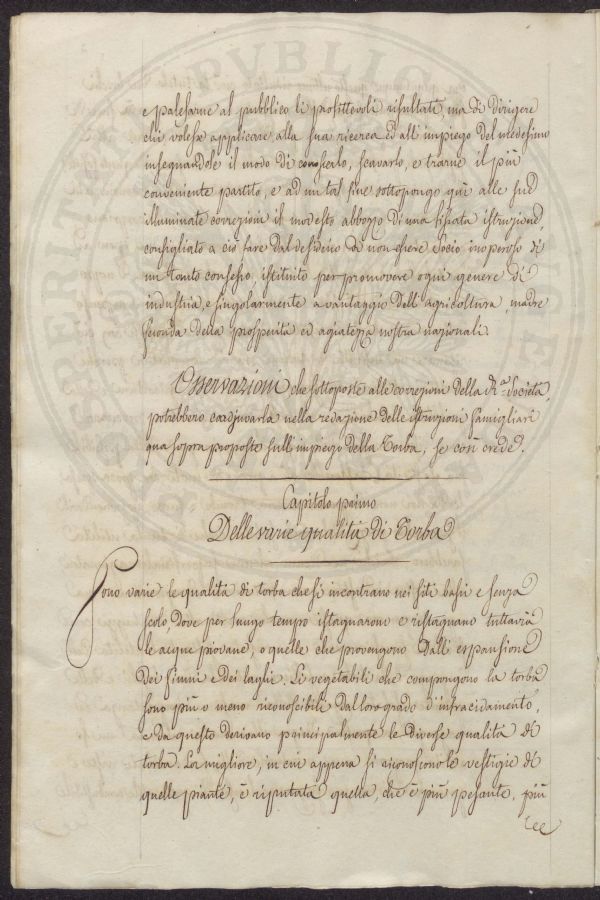 e palesarne al pubblico li profittevoli risultati, ma di dirigere
chi volesse applicare alla sua ricerca ed all'impiego del medesimo
insegnandole il modo di conoscerlo, scavarlo, e trarne il più
conveniente partito, e ad un tal fine sottopongo quì alle sue
illuminate correzioni il modesto abbozzo di una sifsata istruzione,
consigliato a ciò fare dal desiderio di non essere Socio inoperoso di
un tanto consesso, istituito per promovere ogni genere di
industria, e singolarmente a vantaggio dell'agricoltura, madre
feconda della prosperità ed agiatezza nostra nazionali.
Osservazioni che sottoposte alle correzioni della R.a Società,
potrebbero coadjuvarla nella redazione delle istruzioni famigliari
qua sopra proposte sull'impiego della Torba, se così crede.
Capitolo primo
Delle varie qualità di Torba
Sono varie le qualità di torba che si incontrano nei siti bassi e senza
scolo, dove per lungo tempo istagnarono e ristagnano tuttavia
le acque piovane, o quelle che provengono dall'espansione
dei fiumi e dei laghi. Li vegetabili che compongono la torba
sono più o meno riconoscibili dal loro grado d'infracidamento,
e da questo derivano principalmente le diverse qualità di
torba. La migliore, in cui appena si riconoscono le vestigie di
quelle piante, è riputata quella, che è più pesante, più